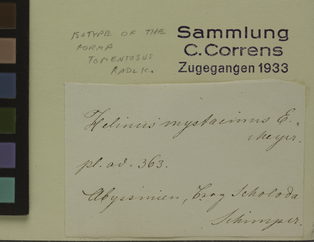 ISOTYPE OF THE
FORMA
TOMENTOSUS
RADLK.
Sammlung
C. Correns
Zugegangen 1933
Helinus mystacinus E.
Meyer.
pl. ad. 363.
Abyssinien, Scholoda
Schimper.